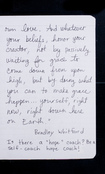 own love. And whatever
your beliefs, honor your
creator, not by passively
waiting for grace to
come down from upon
high, but by doing what
you can to make grace
happen... yourself, right
now, right down here
on Earth."
Bradley Whitford
Is there a "hope" coach? Or a
self-coach hope coach?